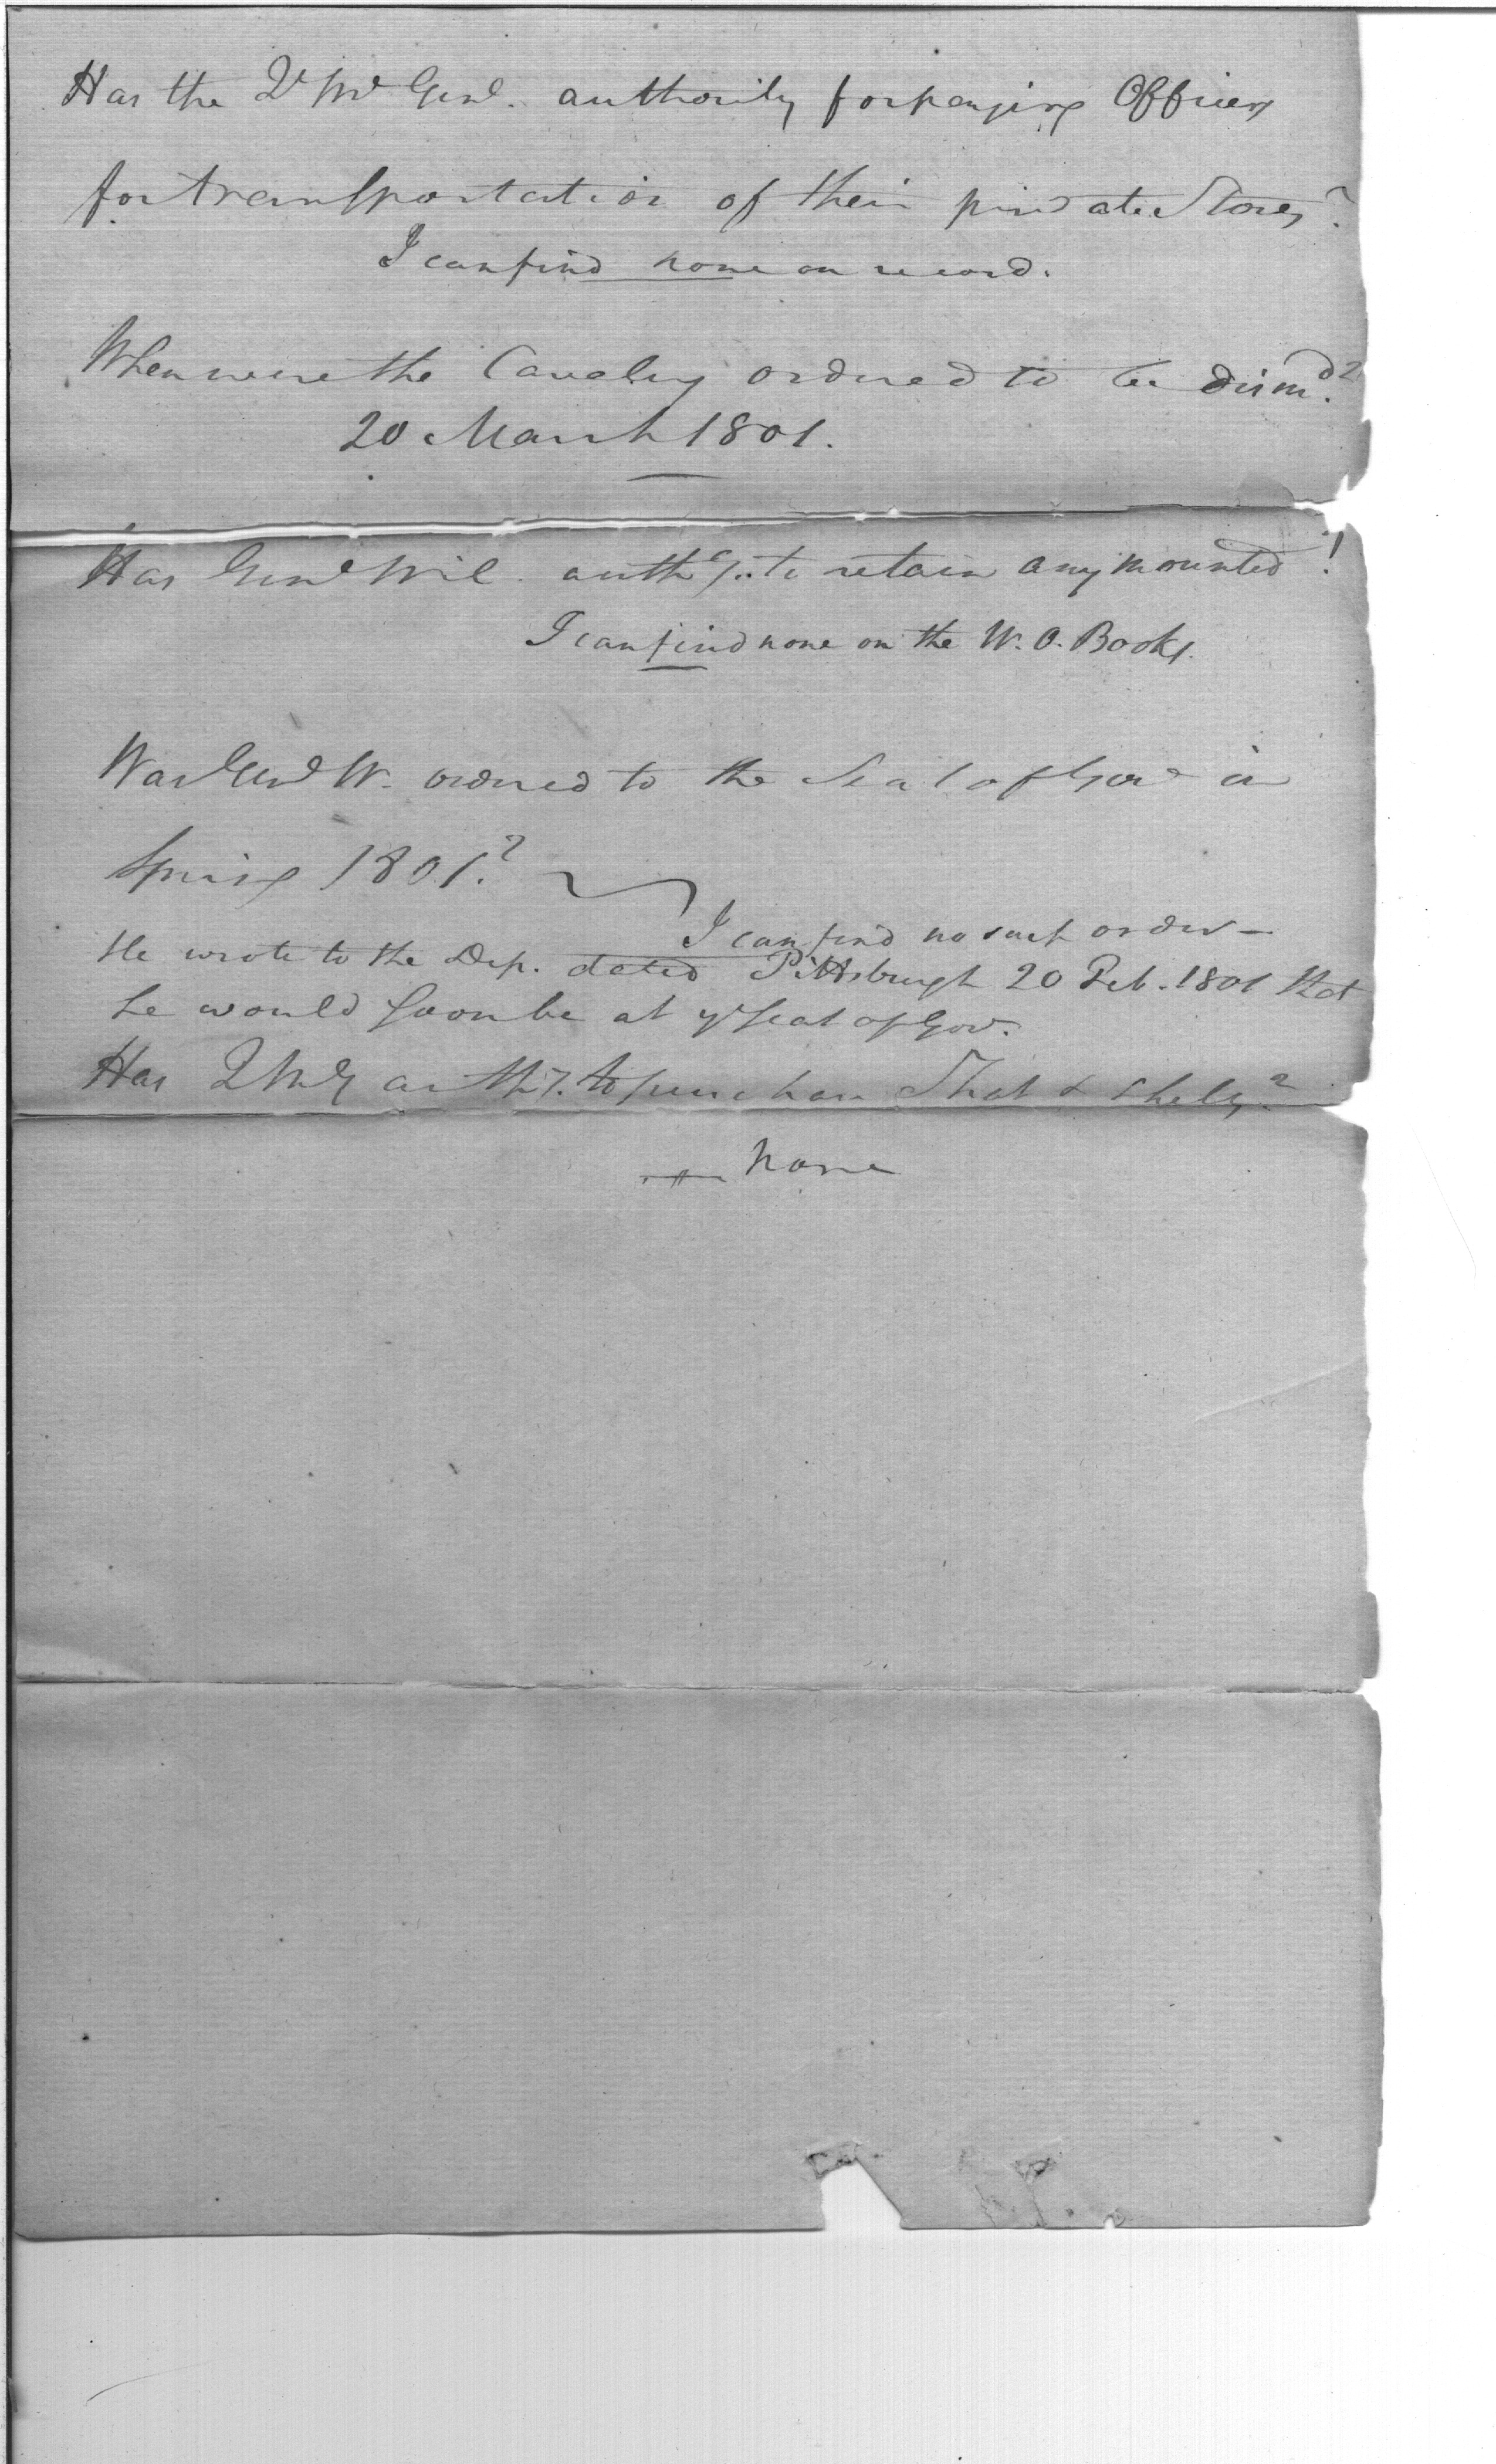 Has the Q Mr Genl. authority for paying Officers
for transportation of their private Stores?
I can find none on record.
When were the Cavalry ordered to be dismd.?
20 March 1801.
Has Genl Wil. authy. to retain any mounted!
I can find none on the W. O. Books.
Was Genl W. ordered to the Seat of Govt in
Spring 1801.?
I can find no such order—
He wrote to the Dep. dated Pittsburgh 20 Feb. 1801 that
he would soon be at ye seat of Gov.
Has QMG authy. to purchase Shot & Shells?
none